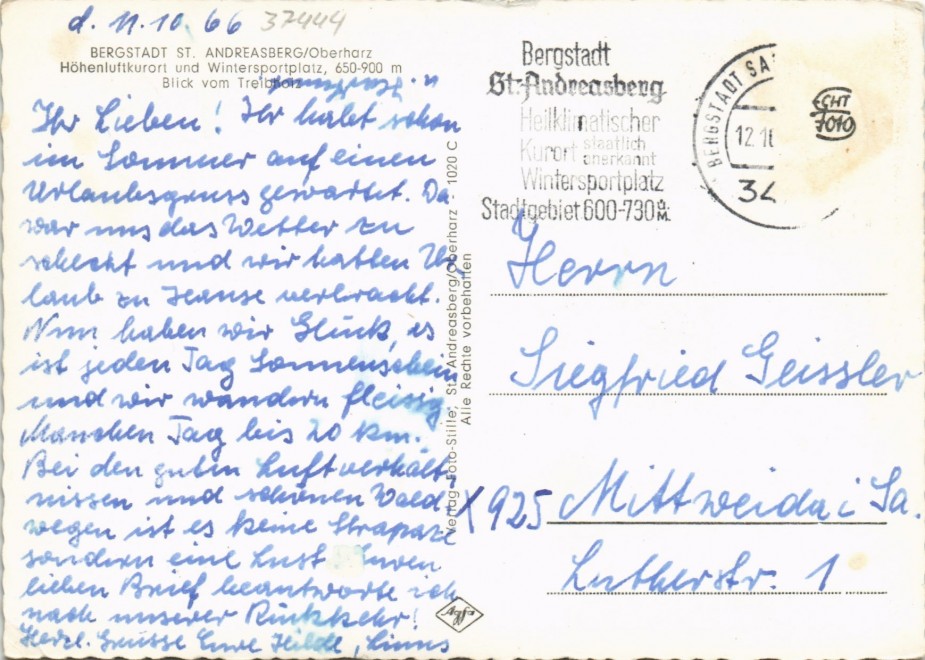 d. 11.10.66 37444
BERGSTADT ST. ANDREASBERG/Oberharz
Höhenluftkurort und Wintersportplatz, 650-900 m
Blick vom Treibholz
Ihr Lieben! Ihr habt schon
im Sommer auf einen
Urlaubsgruss gewartet. Da
war uns das Wetter zu
schlecht und wir hatten Ur
laub zu Hause verbracht.
Nun haben wir Glück, es
ist jeden Tag Sonnenschein
und wir wandern fleissig.
Manchen Tag bis 20 km.
Bei den guten Luftverhält-
nissen und schönen Wald
wegen ist es keine Strapaze
sondern eine Lust. Euren
lieben Brief beantworte ich
nach unserer Rückkehr!
Herzl. Grüsse Eure Hilde,
Verlag: Foto-Stille, St. Andreasberg/Oberharz - 1020 C
Alle Rechte vorbehalten
Agfa
Bergstadt
St. Andreasberg
Heilklimatischer
Kurort staatlich anerkannt
Wintersportplatz
Stadtgebiet 600-730 ü.M.
BERGSTADT SA
12.10
34
ECHT
FOTO
Herrn
Siegfried Geissler
X 925 Mittweida i Sa.
Lutherstr. 1